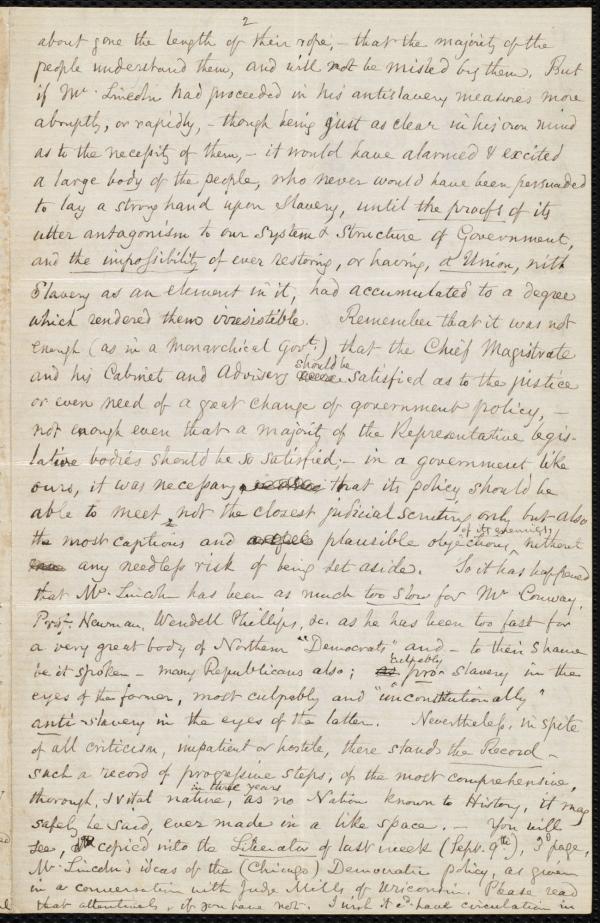 2
about gone the length of their rope, – that the majority of the
people understand them, and will not be misled by them. But
if Mr. Lincoln had proceeded in his antislavery measures more
abruptly, or rapidly, – though being just as clear in his own mind
as to the necessity of them, – it would have alarmed & excited
a large body of the people, who never would have been persuaded
to lay a strong hand upon Slavery, until the proofs of its
utter antagonism to our System & Structure of Government,
and the impossibility of ever restoring, or having, a Union, with
Slavery as an element in it, had accumulated to a degree
which rendered them irresistible. Remember that it was not
enough (as in a monarchical Govt.) that the Chief Magistrate
and his Cabinet and Advisers should be satisfied as to the justice
or even need of a great change of government policy, –
not enough even that a majority of the Representative legis-
lative bodies should be so satisfied; – in a government like
ours, it was necessary that its policy should be
able to meet not the closest judicial scrutiny only but also
the most captious and plausible objections of its enemies, without
any needless risk of being set aside. So it has happened
that Mr. Lincoln has been as much too slow for Mr Conway,
Prof. Newman, Wendell Phillips, &c. as he has been too fast for
a very great body of Northern "Democrats" and – to their shame
be it spoken – many Republicans also; culpably pro-slavery in the
eyes of the former, most culpably and "unconstitutionally"
anti-slavery in the eyes of the latter. Nevertheless, in spite
of all criticism, impatient or hostile, there stands the Record –
such a record of progressive steps, of the most comprehensive,
thorough, & vital nature, in three years as no Nation known to History, it may
safely be said, ever made in a like space. – You will
see, copied into the Liberator of last week (Sept. 9th), 3d page,
Mr. Lincoln's ideas of the (Chicago) Democratic policy, as given
in a conversation with Judge Mills of Wisconsin. Please read
that attentively, if you have not. I wish it cd. have circulation in